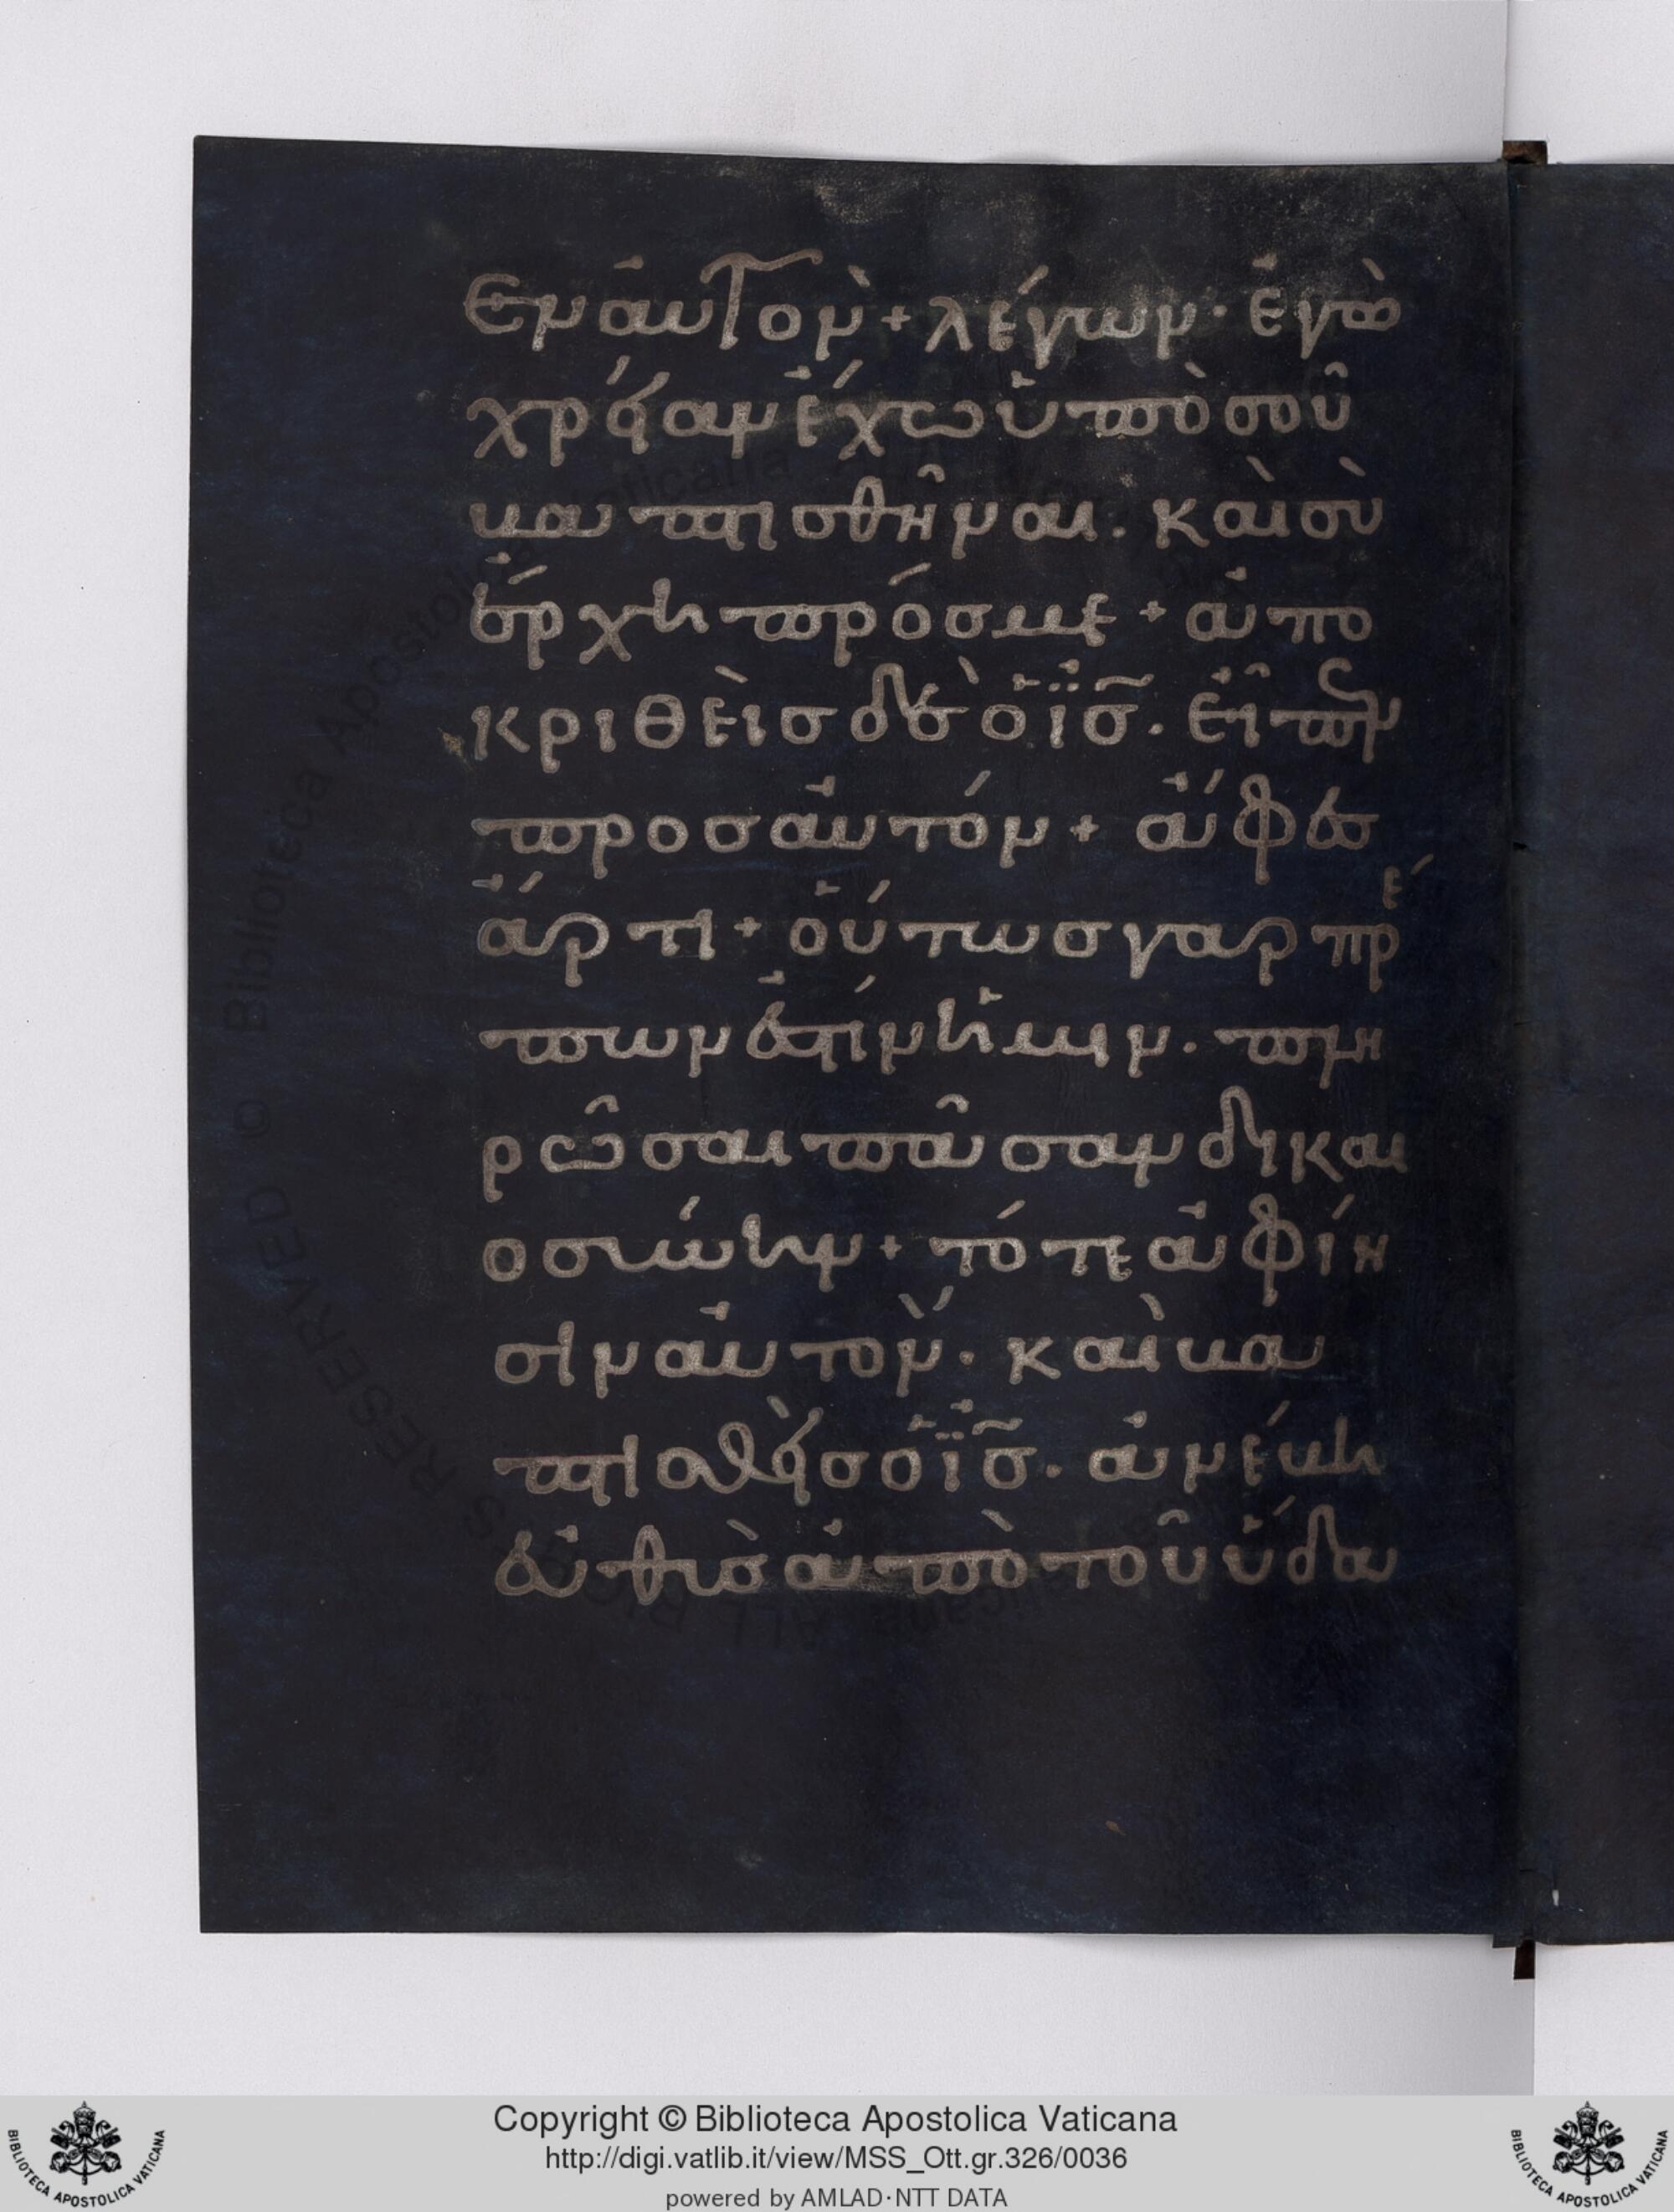 ἐν αὐτὸν + λέγων · ἐγὼ
χρείαν ἔχω ὑπὸ σοῦ
βαπτισθῆναι . καὶ σὺ
ἔρχη πρόσ με + ἀπο
κριθεὶσ δὲ ὁ ῑσ̄ . εἶπεν
προσ αὐτόν + ἄφεσ
ἄρτι + οὕτωσ γαρ πρέ
πων ἐστίν ἡμῖν . πλη
ρῶσαι πᾶσαν δικαι
οσύνην + τότε ἀφίη
σιν αὐτὸν . καὶ βα
πτισθεὶσ ὁ ῑσ̄ . ἀνέβη
εὐθὺσ ἀπὸ τοῦ ὕδα
Copyright © Biblioteca Apostolica Vaticana
http://digi.vatlib.it/view/MSS_Ott.gr.326/0036
powered by AMLAD·NTT DATA
BIBLIOTECA APOSTOLICA VATICANA
BIBLIOTECA APOSTOLICA VATICANA